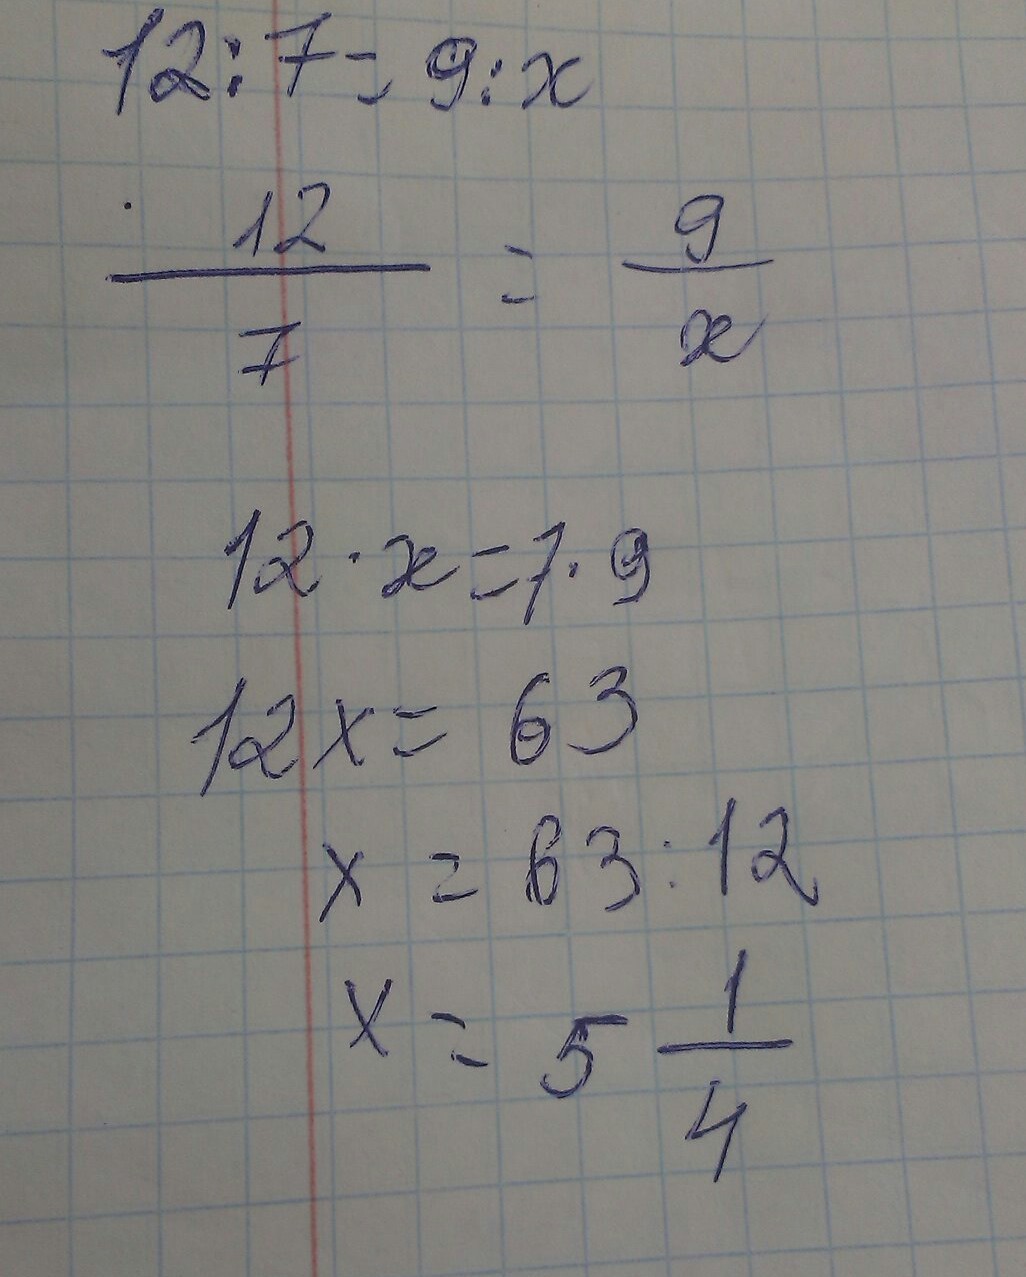 12:7=9:x
12/7 = 9/x
12·x=7·9
12x=63
x=63:12
x=5 1/4